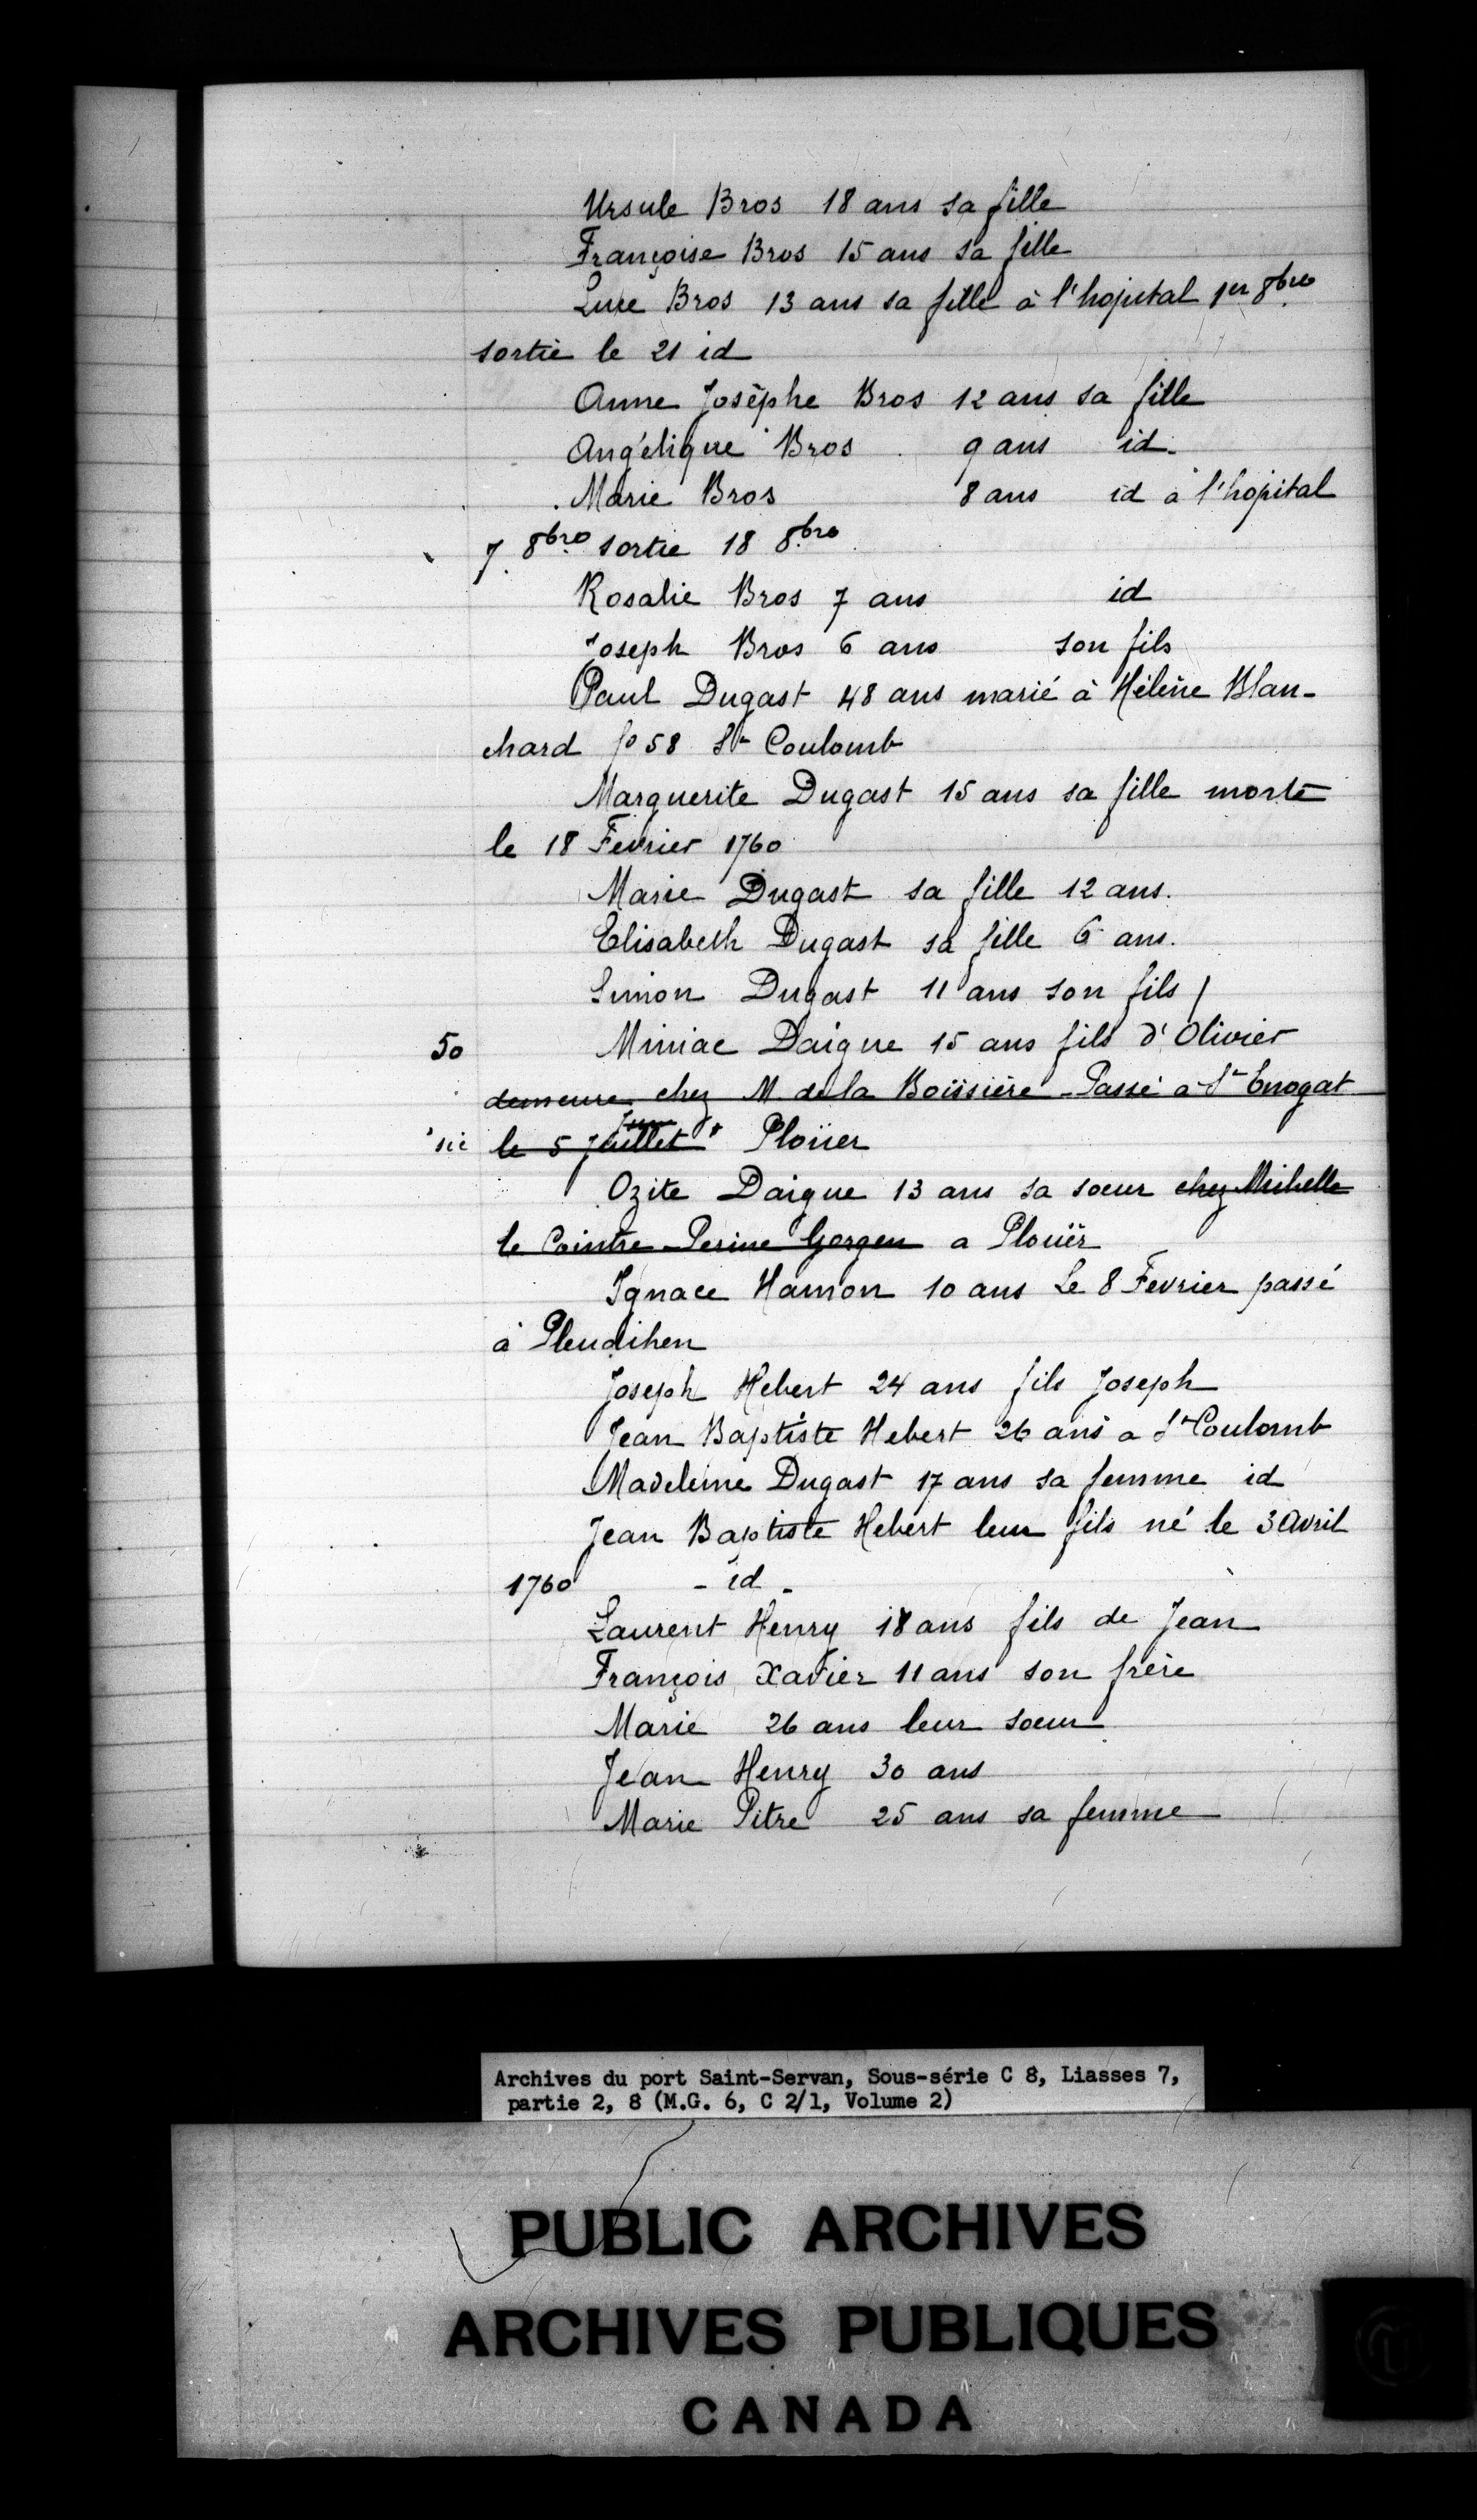 Ursule Bros 18 ans sa fille
Françoise Bros 15 ans sa fille
Luce Bros 13 ans sa fille à l'hopital 1er 8bre
sortie le 21 id
Anne Josèphe Bros 12 ans sa fille
Angélique Bros 9 ans id.
Marie Bros 8 ans id à l'hopital
7 8bre sortie 18 8bre
Rosalie Bros 7 ans id
Joseph Bros 6 ans son fils
Paul Dugast 48 ans marié à Hélène Blan-
chard fo 58 St Coulomb
Marguerite Dugast 15 ans sa fille morte
le 18 Fevrier 1760
Marie Dugast sa fille 12 ans.
Elisabeth Dugast sa fille 6 ans.
Simon Dugast 11 ans son fils /
50 Miniac Daigue 15 ans fils d'Olivier
demeure chez M. de la Boissière - Passé a St Enogat
sic le 5 Juillet Ploüer
Ozite Daigue 13 ans sa soeur chez Michelle
le Cointre Perine Gorgen a Plouër
Ignace Hamon 10 ans Le 8 Fevrier passé
à Pleudihen
Joseph Hebert 24 ans fils Joseph
Jean Baptiste Hebert 26 ans a St Coulomb
Madeleine Dugast 17 ans sa femme id
Jean Baptiste Hebert leur fils né le 3 Avril
1760 - id -
Laurent Henry 18 ans fils de Jean
François Xavier 11 ans son frère
Marie 26 ans leur soeur
Jean Henry 30 ans
Marie Pitre 25 ans sa femme
Archives du port Saint-Servan, Sous-série C 8, Liasses 7,
partie 2, 8 (M.G. 6, C 2/1, Volume 2)
PUBLIC ARCHIVES
ARCHIVES PUBLIQUES
CANADA